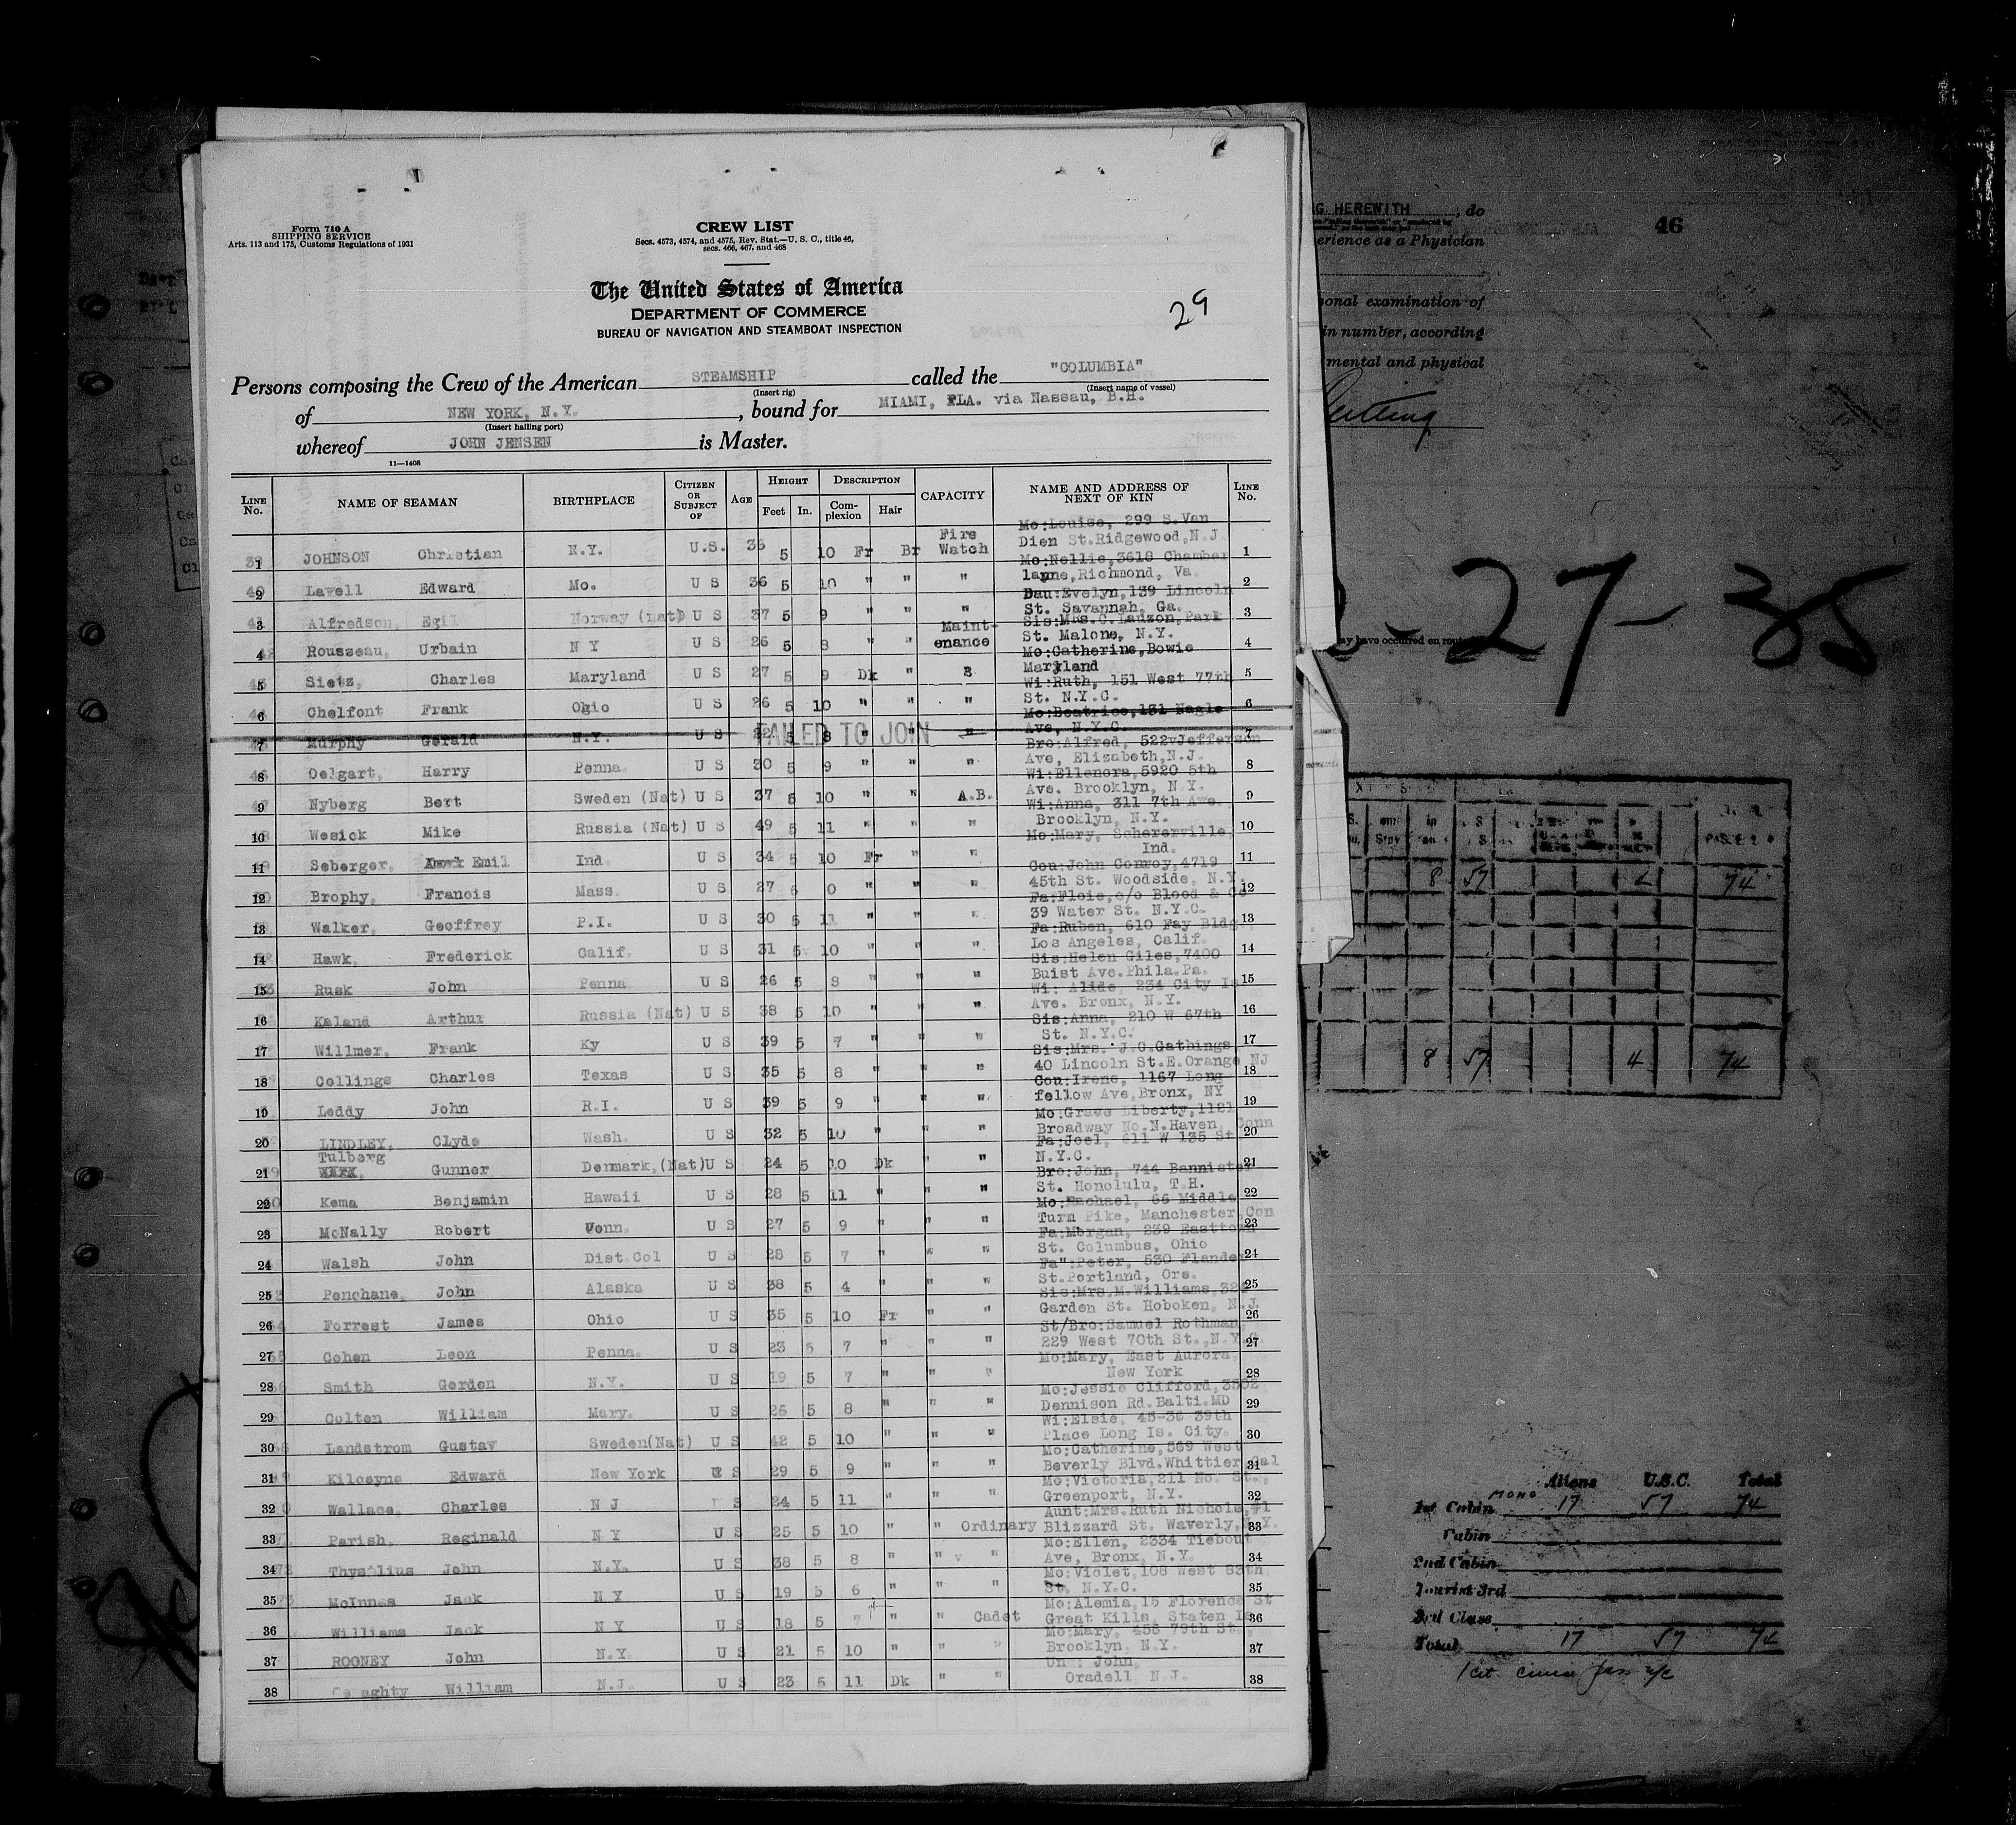 Form 710 A
SHIPPING SERVICE
Arts. 113 and 175, Customs Regulations of 1931
CREW LIST
Secs. 4573, 4574, and 4575, Rev. Stat.—U. S. C., title 46,
secs. 466, 467, and 468
The United States of America
DEPARTMENT OF COMMERCE
BUREAU OF NAVIGATION AND STEAMBOAT INSPECTION
29
Persons composing the Crew of the American STEAMSHIP called the "COLUMBIA"
(Insert rig) (Insert name of vessel)
of NEW YORK, N.Y. , bound for MIAMI, FLA. via Nassau, B.H.
(Insert hailing port)
whereof JOHN JENSEN is Master.
11—1408
LINE No. NAME OF SEAMAN BIRTHPLACE CITIZEN OR SUBJECT OF AGE HEIGHT Feet In. DESCRIPTION Complexion Hair CAPACITY NAME AND ADDRESS OF NEXT OF KIN LINE No.
1 JOHNSON Christian N.Y. U.S. 36 5 10 Fr Br Fire Watch Mo:Louise, 299 S.Van Dien St.Ridgewood,N.J. 1
2 Lavell Edward Mo. U S 36 5 10 " " " Mo:Nellie,3618 Chamber layne,Richmond, Va. 2
3 Alfredson, Egil Norway (nat) U S 37 5 9 " " " Dau:Evelyn,139 Lincoln St. Savannah, Ga. 3
4 Rousseau, Urbain N Y U S 26 5 8 " " Maint-enance Sis:Mrs.C.Lauzon,Park St. Malone, N.Y. 4
5 Sietz, Charles Maryland U S 27 5 9 Dk " " Mo:Catherine,Bowie Maryland 5
6 Chelfont Frank Ohio U S 26 5 10 " " " Wi:Ruth, 151 West 77th St. N.Y.C. 6
7 Murphy Gerald N.Y. U S 22 5 8 " " " Mo:Beatrice,131 Nagle Ave, N.Y.C. 7
FAILED TO JOIN
8 Oelgart, Harry Penna. U S 30 5 9 " " " Bro:Alfred, 522 Jefferson Ave, Elizabeth,N.J. 8
9 Nyberg Bert Sweden (Nat) U S 37 5 10 " " A.B. Wi:Ellenora,5920 5th Ave. Brooklyn, N.Y. 9
10 Wesick Mike Russia (Nat) U S 49 5 11 " " " Wi:Anna, 311 7th Ave. Brooklyn, N.Y. 10
11 Seberger, Emil Ind. U S 34 5 10 Fr " " Mo:Mary, Schererville, Ind. 11
12 Brophy, Francis Mass. U S 27 6 0 " " " Cou:John Conroy,4719 45th St. Woodside, N.Y. 12
13 Walker, Geoffrey P.I. U S 30 5 11 " " " Fa:Floie,c/o Blood & Co 39 Water St. N.Y.C. 13
14 Hawk, Frederick Calif. U S 31 5 10 " " " Fa:Ruben, 610 Fay Bldg, Los Angeles, Calif. 14
15 Rusk John Penna U S 26 5 8 " " " Sis:Helen Giles,7400 Buist Ave.Phila.Pa. 15
16 Kaland Arthur Russia (Nat) U S 38 5 10 " " " Wi: Alide, 234 City Is Ave. Bronx, N.Y. 16
17 Willmer, Frank Ky U S 39 5 7 " " " Sis:Anna, 210 W 67th St. N.Y.C. 17
18 Collings Charles Texas U S 35 5 8 " " " Sis:Mrs. J.C.Gathings 40 Lincoln St.E.Orange NJ 18
19 Leddy John R.I. U S 39 5 9 " " " Cou:Irene, 1167 Long fellow Ave,Bronx, NY 19
20 LINDLEY, Clyde Wash. U S 32 5 10 " " " Mo:Grace Liberty,1121 Broadway No.N.Haven, Conn 20
21 Tulberg Gunner Denmark,(Nat) U S 24 5 10 Dk " " Fa:Joel, 611 W 135 St N.Y.C. 21
22 Kema Benjamin Hawaii U S 28 5 11 " " " Bro:John, 744 Bannister St. Honolulu, T.H. 22
23 McNally Robert Conn. U S 27 5 9 " " " Mo:Rachael, 66 Middle Turn Pike, Manchester,Con 23
24 Walsh John Dist.Col U S 28 5 7 " " " Fa:Morgan, 239 Easttown St. Columbus, Ohio 24
25 Penchane, John Alaska U S 38 5 4 " " " Fa":Peter, 530 Flander St.Portland, Ore. 25
26 Forrest James Ohio U S 35 5 10 Fr " " Sis:Mrs.M.Williams,324 Garden St. Hoboken, N.J. 26
27 Cohen Leon Penna. U S 23 5 7 " " " St/Bro:Samuel Rothman, 229 West 70th St.,N.Y.C. 27
28 Smith Gordon N.Y. U S 19 5 7 " " " Mo:Mary, East Aurora, New York 28
29 Colton William Mary. U S 26 5 8 " " " Mo:Jessie Clifford,3502 Dennison Rd.Balti.MD 29
30 Landstrom Gustav Sweden(Nat) U S 42 5 10 " " " Wi:Elsie, 45-36 39th Place Long Is. City. 30
31 Kilcoyne Edward New York U S 29 5 9 " " " Mo:Catherine,569 West Beverly Blvd.Whittier Cal 31
32 Wallace, Charles N J U S 24 5 11 " " " Mo:Victoria,211 No. St., Greenport, N.Y. 32
33 Parish, Reginald N Y U S 25 5 10 " " Ordinary Aunt:Mrs.Ruth Nichols,41 Blizzard St. Waverly,N.Y. 33
34 John N.Y. U S 38 5 8 " " " Mo:Ellen, 2334 Tiebout Ave, Bronx, N.Y. 34
35 McInnes Jack N Y U S 19 5 6 " " " Mo:Violet,108 West 83th St. N.Y.C. 35
36 Williams Jack N Y U S 18 5 7 " " Cadet Mo:Alemia,15 Florence St Great Kills, Staten Is 36
37 ROONEY John N.Y. U S 21 5 10 " " " Mo:Mary, 456 79th St., Brooklyn, N.Y. 37
38 William N.J. U S 23 5 11 Dk " " Un: John, Oradell N.J. 38
HEREWITH , do
46
erience as a Physician
sonal examination of
in number, according
mental and physical
-27-35
ay have occurred en route
8 57 74
8 57 4 74
Aliens U.S.C. Total
1st Cabin MONO 17 57 74
Cabin
2nd Cabin
Tourist 3rd
3rd Class
Total 17 57 74